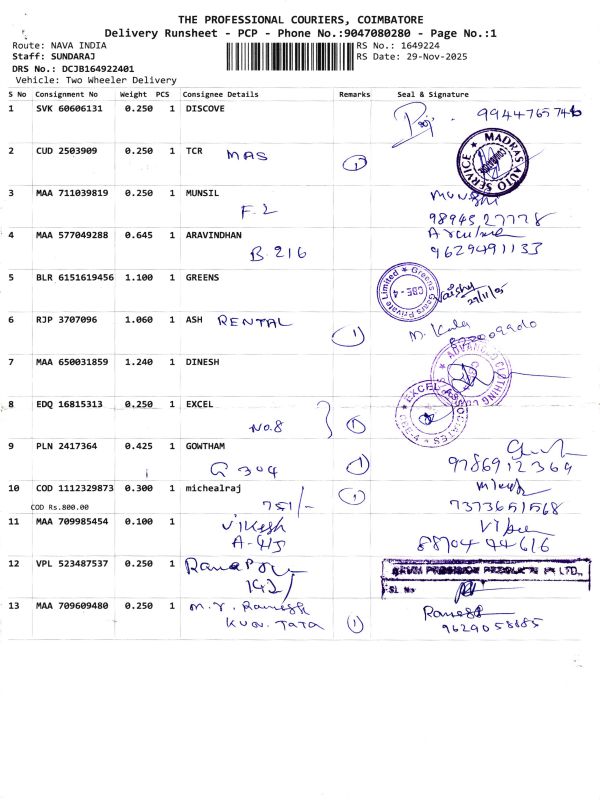 THE PROFESSIONAL COURIERS, COIMBATORE
Delivery Runsheet - PCP - Phone No.:9047080280 - Page No.:1
Route: NAVA INDIA RS No.: 1649224
Staff: SUNDARAJ RS Date: 29-Nov-2025
DRS No.: DCJB164922401
Vehicle: Two Wheeler Delivery
S No Consignment No Weight PCS Consignee Details Remarks Seal & Signature
1 SVK 60606131 0.250 1 DISCOVE
2 CUD 2503909 0.250 1 TCR MAS 1 MADRAS AUTO SERVICE
3 MAA 711039819 0.250 1 MUNSIL
F.2 9894527778
4 MAA 577049288 0.645 1 ARAVINDHAN
B.216 9629491133
5 BLR 6151619456 1.100 1 GREENS Greens Gears Private Limited CBE-4
29/11/25
6 RJP 3707096 1.060 1 ASH RENTAL 1 M. Kala
7 MAA 650031859 1.240 1 DINESH ADVANCED CLOTHING
8 EDQ 16815313 0.250 1 EXCEL EXCEL ASSOCIATES CBE-4
NO.8 1
9 PLN 2417364 0.425 1 GOWTHAM
G 304 1 9786912369
10 COD 1112329873 0.300 1 michealraj 1
COD Rs.800.00 751/- 7373651568
11 MAA 709985454 0.100 1 Vikesh
A-415 8870444616
12 VPL 523487537 0.250 1
142/ SL No
13 MAA 709609480 0.250 1 M.Y. Ramesh Ramesh
TATA 1 9629058885